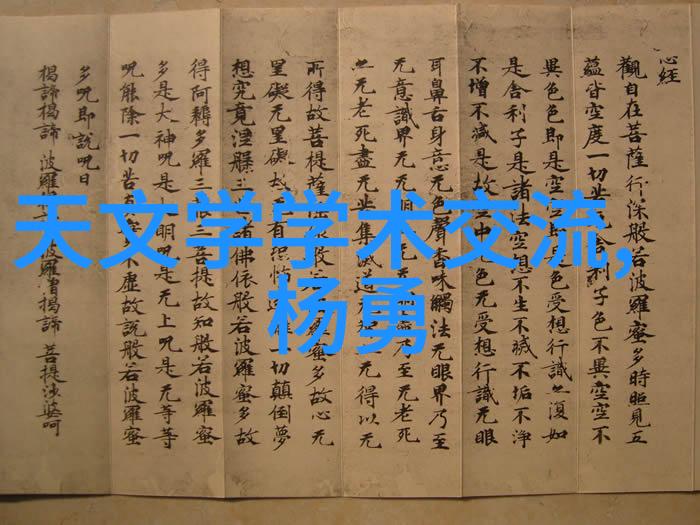 天文学学术交流,
杨勇
心经
觀自在菩薩行深般若波羅蜜多時照見五
蘊皆空度一切苦舍利子色不異空空不
異色色即是空空是色受想行識亦復如
是舍利子是諸法空想不生不滅不垢不淨
不增不減是故空中色无受想行識无眼
耳鼻舌身意无色聲香味觸法无眼界乃至
无意識界无无明无乃至无老死
亦无老死盡无苦集滅道无得以无
所得故菩提薩般若蜜多故心无
罣礙无罣礙故有恐怖一切顛倒夢
想究竟涅槃三諸佛依般若波羅蜜多故
得阿耨多羅三藐三菩提故知般若波羅蜜
多是大神咒是明咒是无上咒是无等等
咒能除一切苦真不虛故說般若波羅蜜
多咒即說咒曰
揭諦揭諦 波羅揭 波羅僧揭諦 菩提莎婆呵